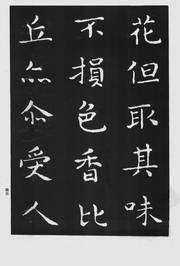 花但取其味
不損色香比
丘亦尒受人